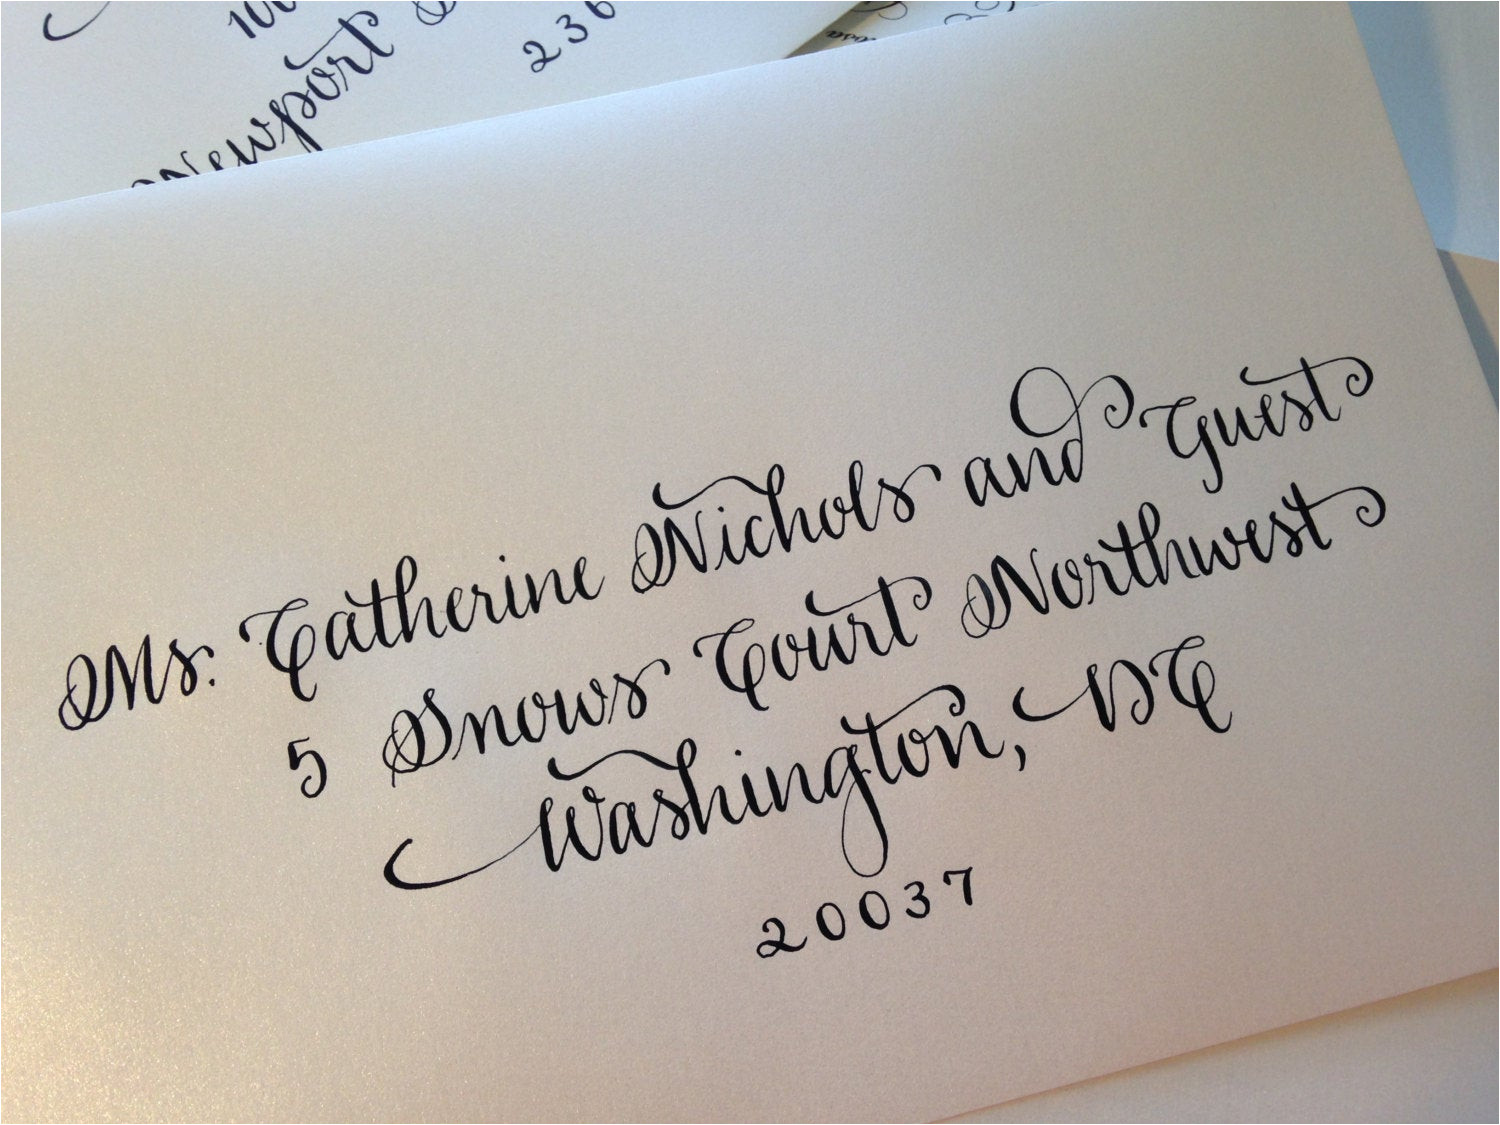 Newport
236
Ms. Catherine Nichols and Guest
5 Snows Court Northwest
Washington, DC
20037